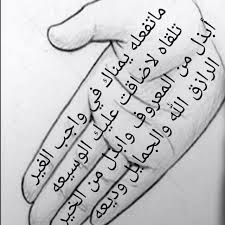 ماتفعله يمناك في واجب الغير
تلقاه لاضاقت عليك الوسيعه
أبذل من المعروف وأبذل من الخير
الرازق الله والجميل وديعه